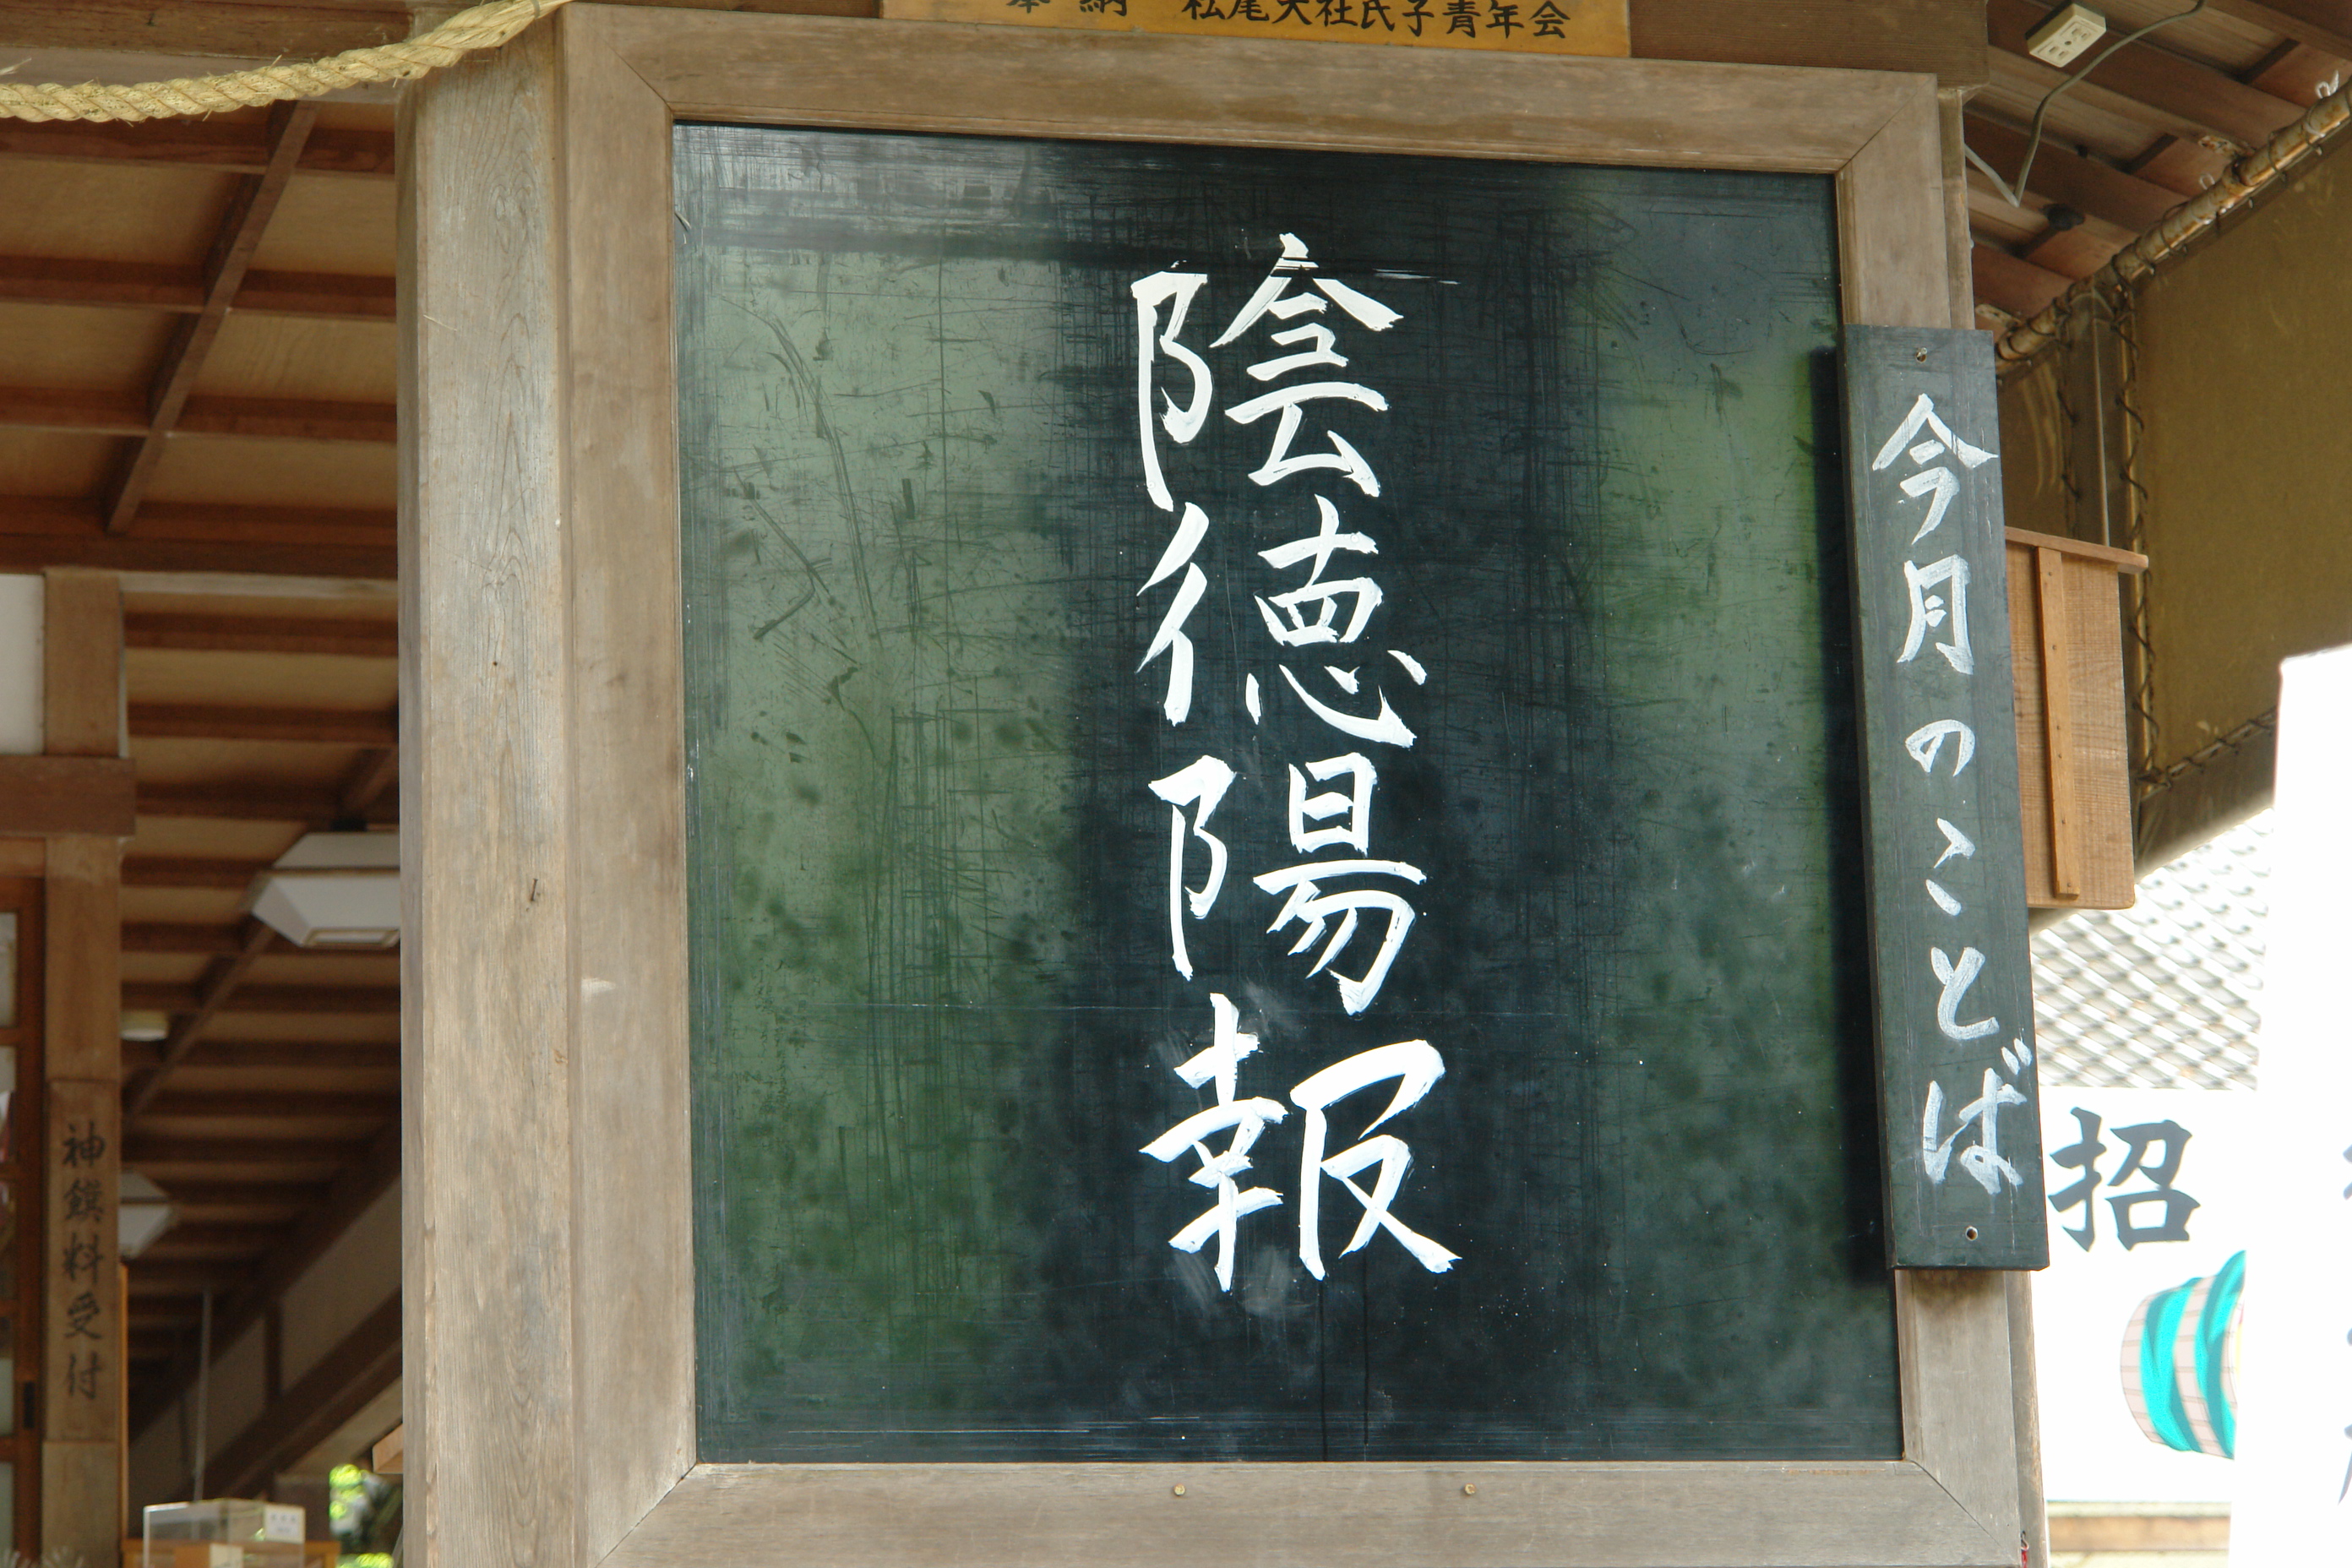 奉納 松尾大社氏子青年会
今月のことば
陰徳陽報
神饌料受付
招